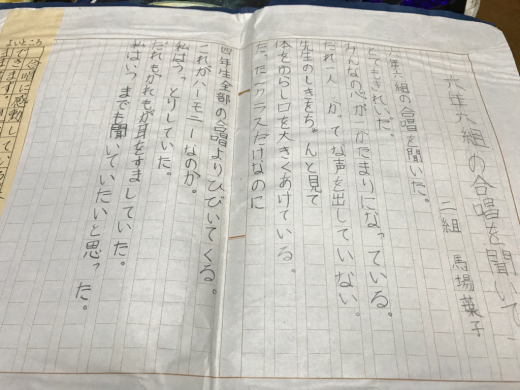 六年六組の合唱を聞いて
二組 馬場葉子
六年六組の合唱を聞いた。
とてもきれいだ。
みんなの心が一かたまりになっている。
だれ一人 かってな声を出していない。
先生のしきをちゃんと見て
体をゆらし口を大きくあけている。
たった一クラスだけなのに
四年生全部の合唱よりひびいてくる。
これがハーモニーなのか。
私はうっとりしていた。
だれもかれもが耳をすましていた。
私はいつまでも聞いていたいと思った。
よいところ
合唱に感動している